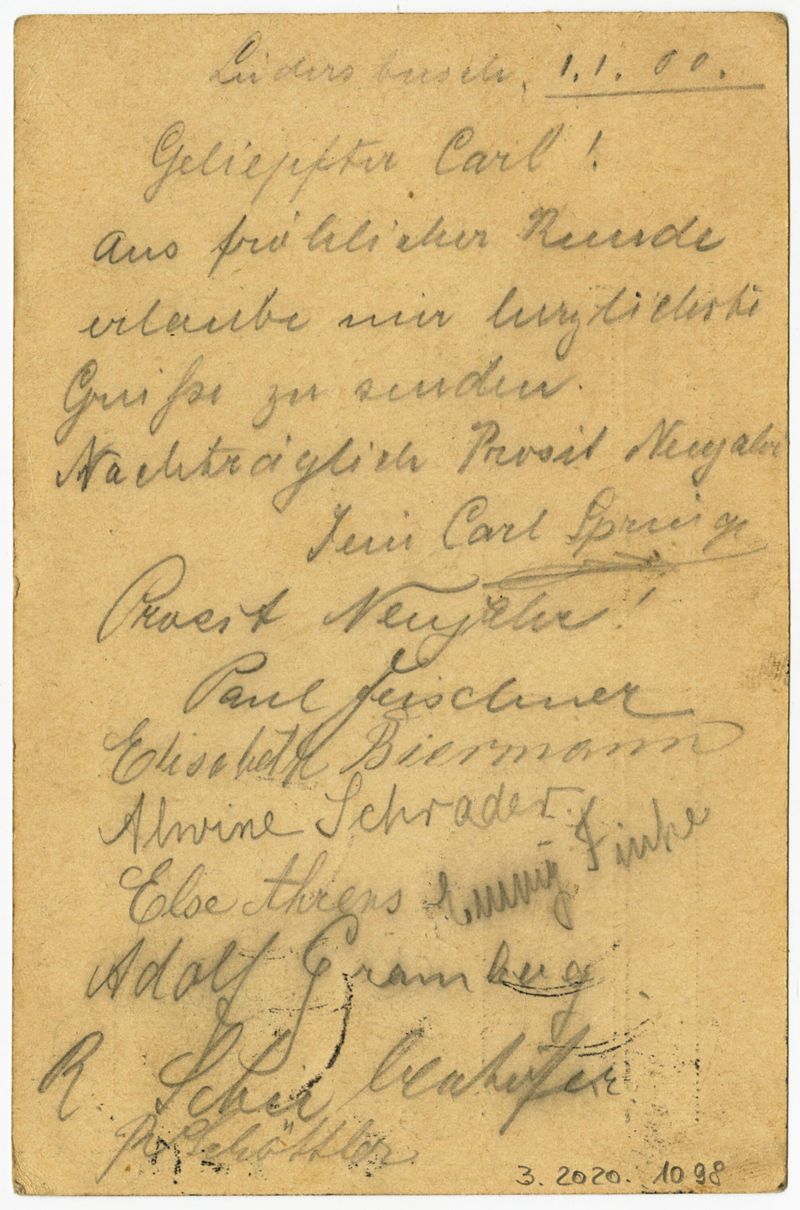 Lüdersbusch, 1.1.00.
Geliepfter Carl!
Aus fröhlicher Runde
erlaube mir herzlichste
Grüße zu senden.
Nachträglich Prosit Neujahr
Dein Carl
Prosit Neujahr!
Paul
Elisabeth Biermann
Alwine Schrader.
Else Ahrens Emmy Finke
Adolf Gramberg
R.
Schöttler
3.2020.1098